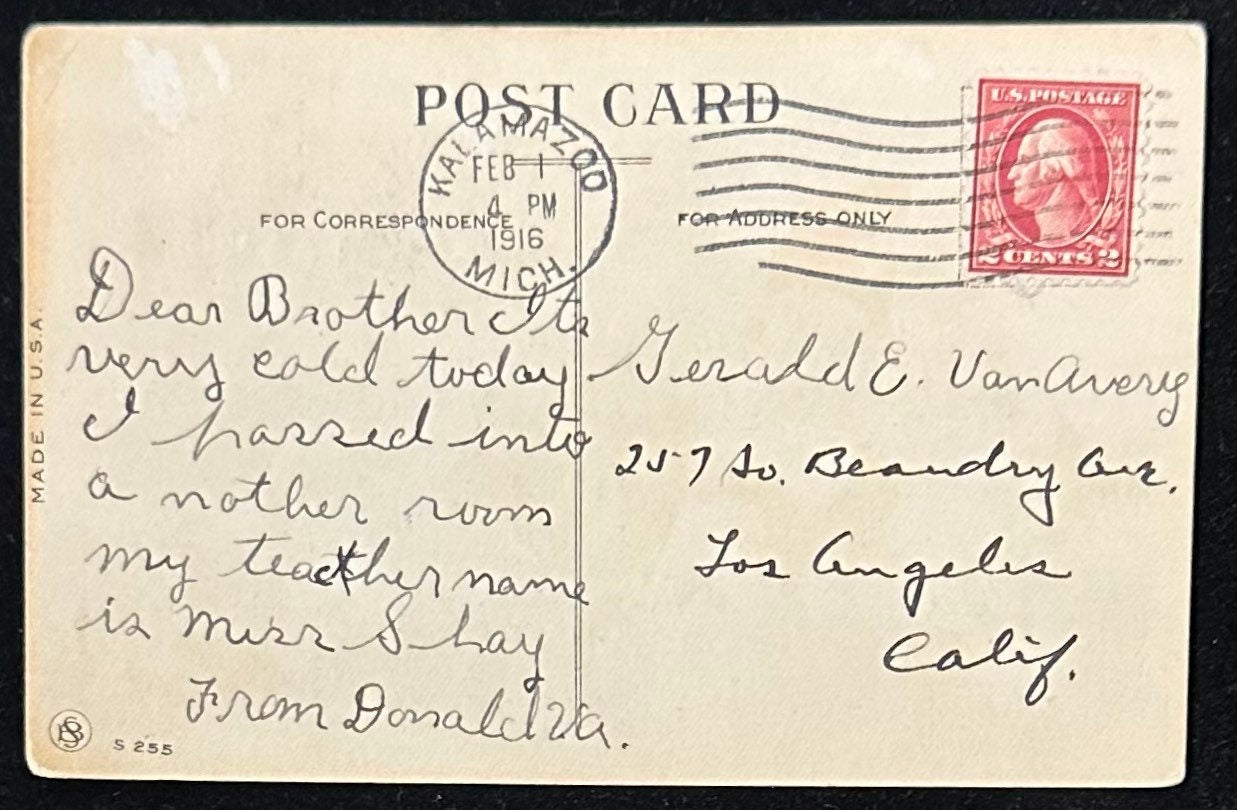 POST CARD
U.S. POSTAGE
2 CENTS 2
KALAMAZOO
FEB 1
4 PM
1916
MICH.
FOR CORRESPONDENCE
FOR ADDRESS ONLY
Dear Brother Its
very cold today
I passed into
a nother room
my teacther name
is Miss Shay
From Donald Va.
Gerald E. VanAvery
257 So. Beaudry Ave.
Los Angeles
Calif.
MADE IN U.S.A.
S 255